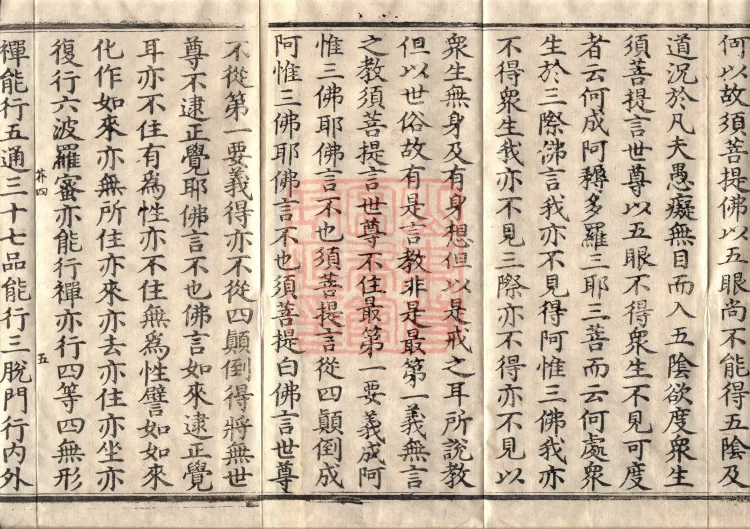 何以故須菩提佛以五眼尚不能得五陰及
道況於凡夫愚癡無目而入五陰欲度眾生
須菩提言世尊以五眼不得眾生不見可度
者云何成阿耨多羅三耶三菩而云何處眾
生於三際佛言我亦不見得阿惟三佛我亦
不得眾生我亦不見三際亦不得亦不見以
眾生無身及有身想但以是戒之耳所說教
但以世俗故有是言教非是最第一義無言
之教須菩提言世尊不住最第一要義成阿
惟三佛耶佛言不也須菩提言從四顛倒成
阿惟三佛耶佛言不也須菩提白佛言世尊
不從第一要義得亦不從四顛倒得將無世
尊不逮正覺耶佛言不也佛言如來逮正覺
耳亦不住有為性亦不住無為性譬如如來
化作如來亦無所住亦來亦去亦住亦坐亦
復行六波羅蜜亦能行禪亦行四等四無形
芥四 五
禪能行五通三十七品能行三脫門行內外